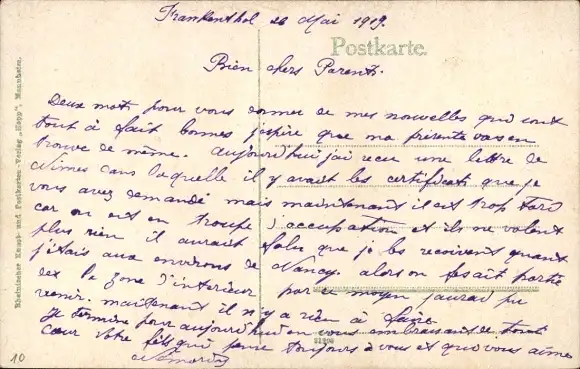 Frankenthal 26 Mai 1919.
Postkarte.
Bien chers Parents.
Deux mots pour vous donner de mes nouvelles qui sont
tout à fait bonnes j'espère que ma présente vas en
trouve de même. aujourd'hui j'ai recu une lettre de
Nimes dans laquelle il y avait les certificats que je
vous avez demandé mais maintenant il est trop tard
car on est en troupe d'occupation et ils ne valent
plus rien il aurait falu que je les recoivent quant
j'étais aux environs de Nancy. alors on fesait partie
de la zone d'interieur par ce moyen jaurai pu
venir. maintenant il n'y a rien à faire
Je termine pour aujourd'hui en vous embrassant de tout
cœur votre fils qui pense toujours à vous et qui vous aime
Rheinischer Kunst- und Postkarten-Verlag „Hepp", Mannheim.
10